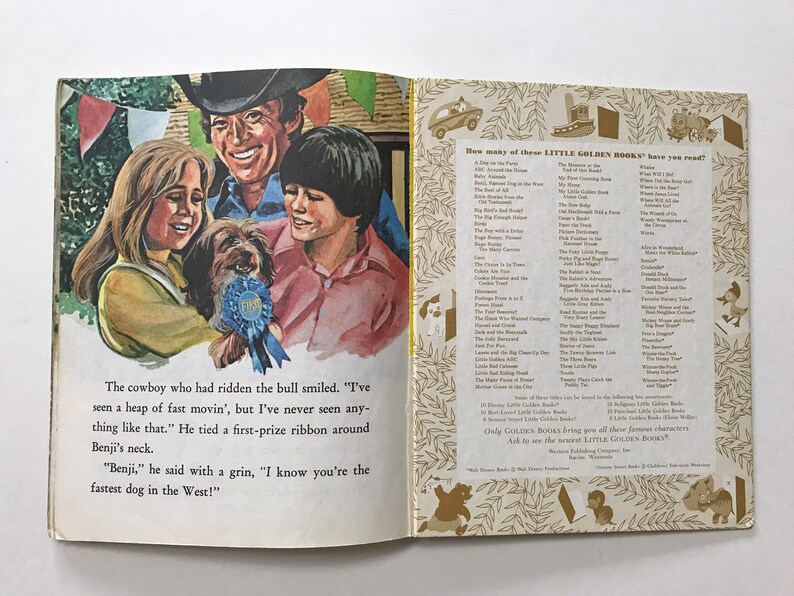 FIRST
The cowboy who had ridden the bull smiled. "I've
seen a heap of fast movin', but I've never seen any-
thing like that." He tied a first-prize ribbon around
Benji's neck.
"Benji," he said with a grin, "I know you're the
fastest dog in the West!"
How many of these LITTLE GOLDEN BOOKS® have you read?
A Day on the Farm
ABC Around the House
Baby Animals
Benji, Fastest Dog in the West
The Best of All
Bible Stories from the
Old Testament
Big Bird's Red Book†
The Big Enough Helper
Birds
The Boy with a Drum
Bugs Bunny, Pioneer
Bugs Bunny
Too Many Carrots
Cars
The Circus Is in Town
Colors Are Nice
Cookie Monster and the
Cookie Tree†
Dinosaurs
Feelings From A to Z
Forest Hotel
The Four Seasons†
The Giant Who Wanted Company
Hansel and Gretel
Jack and the Beanstalk
The Jolly Barnyard
Just For Fun
Lassie and the Big Clean-Up Day
Little Golden ABC
Little Red Caboose
Little Red Riding Hood
The Many Faces of Ernie†
Mother Goose in the City
The Monster at the
End of this Book†
My First Counting Book
My Home
My Little Golden Book
About God
The New Baby
Old MacDonald Had a Farm
Oscar's Book†
Pano the Train
Picture Dictionary
Pink Panther in the
Haunted House
The Poky Little Puppy
Porky Pig and Bugs Bunny
Just Like Magic!
The Rabbit is Next
The Rabbit's Adventure
Raggedy Ann and Andy
Five Birthday Parties in a Row
Raggedy Ann and Andy
Little Gray Kitten
Road Runner and the
Very Scary Lesson
The Saggy Baggy Elephant
Scuffy the Tugboat
The Shy Little Kitten
Stories of Jesus
The Tawny Scrawny Lion
The Three Bears
Three Little Pigs
Tootle
Tweety Plays Catch the
Puddy Tat
Whales
What Will I Be?
Where Did the Baby Go?
Where is the Bear?
Where Jesus Lived
Where Will All the
Animals Go?
The Wizard of Oz
Woody Woodpecker at
the Circus
Words
Alice in Wonderland
Meets the White Rabbit*
Bambi*
Cinderella*
Donald Duck
Instant Millionaire*
Donald Duck and the
One Bear*
Favorite Nursery Tales*
Mickey Mouse and the
Best-Neighbor Contest*
Mickey Mouse and Goofy
Big Bear Scare*
Pete's Dragon*
Pinocchio*
The Rescuers*
Winnie-the-Pooh
The Honey Tree*
Winnie-the-Pooh
Meets Gopher*
Winnie-the-Pooh
and Tigger*
Some of these titles can be found in the following box assortments:
10 Disney Little Golden Books*
10 Best-Loved Little Golden Books
6 Sesame Street Little Golden Books†
10 Religious Little Golden Books
10 Preschool Little Golden Books
6 Little Golden Books (Eloise Wilkin)
Only GOLDEN BOOKS bring you all these famous characters
Ask to see the newest LITTLE GOLDEN BOOKS®.
Western Publishing Company, Inc.
Racine, Wisconsin
*Walt Disney Books © Walt Disney Productions
†Sesame Street Books © Children's Television Workshop